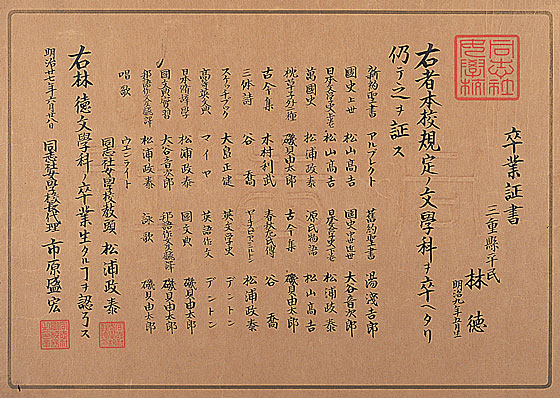 同志社
女學校
卒業証書
三重縣平民
林 徳
明治九年五月生
右者本校規定ノ文學科ヲ卒ヘタリ
仍テ之ヲ証ス
新約聖書 アルブレクト 舊約聖書 湯淺吉郎
國史上世 松山高吉 國史 大谷音次郎
日本文學史上古 松山高吉 日本文學史中古 松山高吉
萬國史 松浦政泰 源氏物語 松山高吉
枕草子外二種 磯貝由太郎 古今集 磯貝由太郎
古今集 木村利武 春秋左氏傳 谷 喬
三体詩 谷 喬 松浦政泰
スケッチブック 大島正健 英文學史 デントン
高等英文典 マイヤ 英語作文 デントン
日本修辞學 松浦政泰 國文典 磯貝由太郎
國文實習 大谷音次郎 邦語作文及飜譯 磯貝由太郎
邦語作文及飜譯 松浦政泰 詠歌 磯貝由太郎
唱歌 ウエンライト
同志社女學校教頭 松浦政泰
右林徳文學科ノ卒業生タルヿヲ認
明治廿七年六月廿八日
同志社女學校長代理 市原盛宏